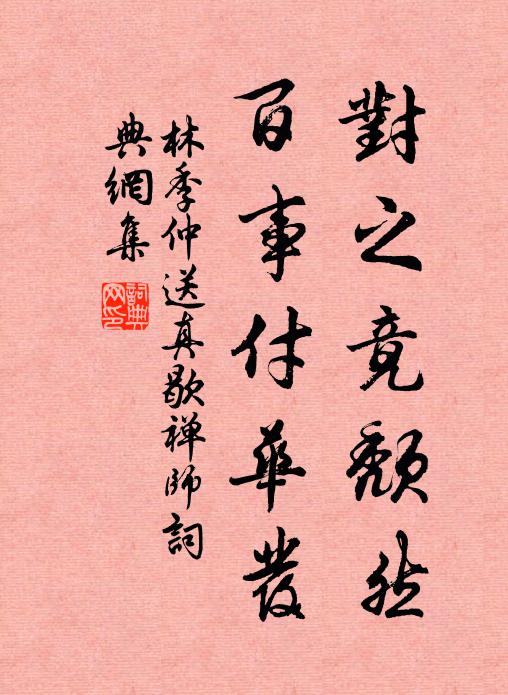 對之竟頹然
百事付華發
林季仲送真歇禅師詞
典網集
詞典网印